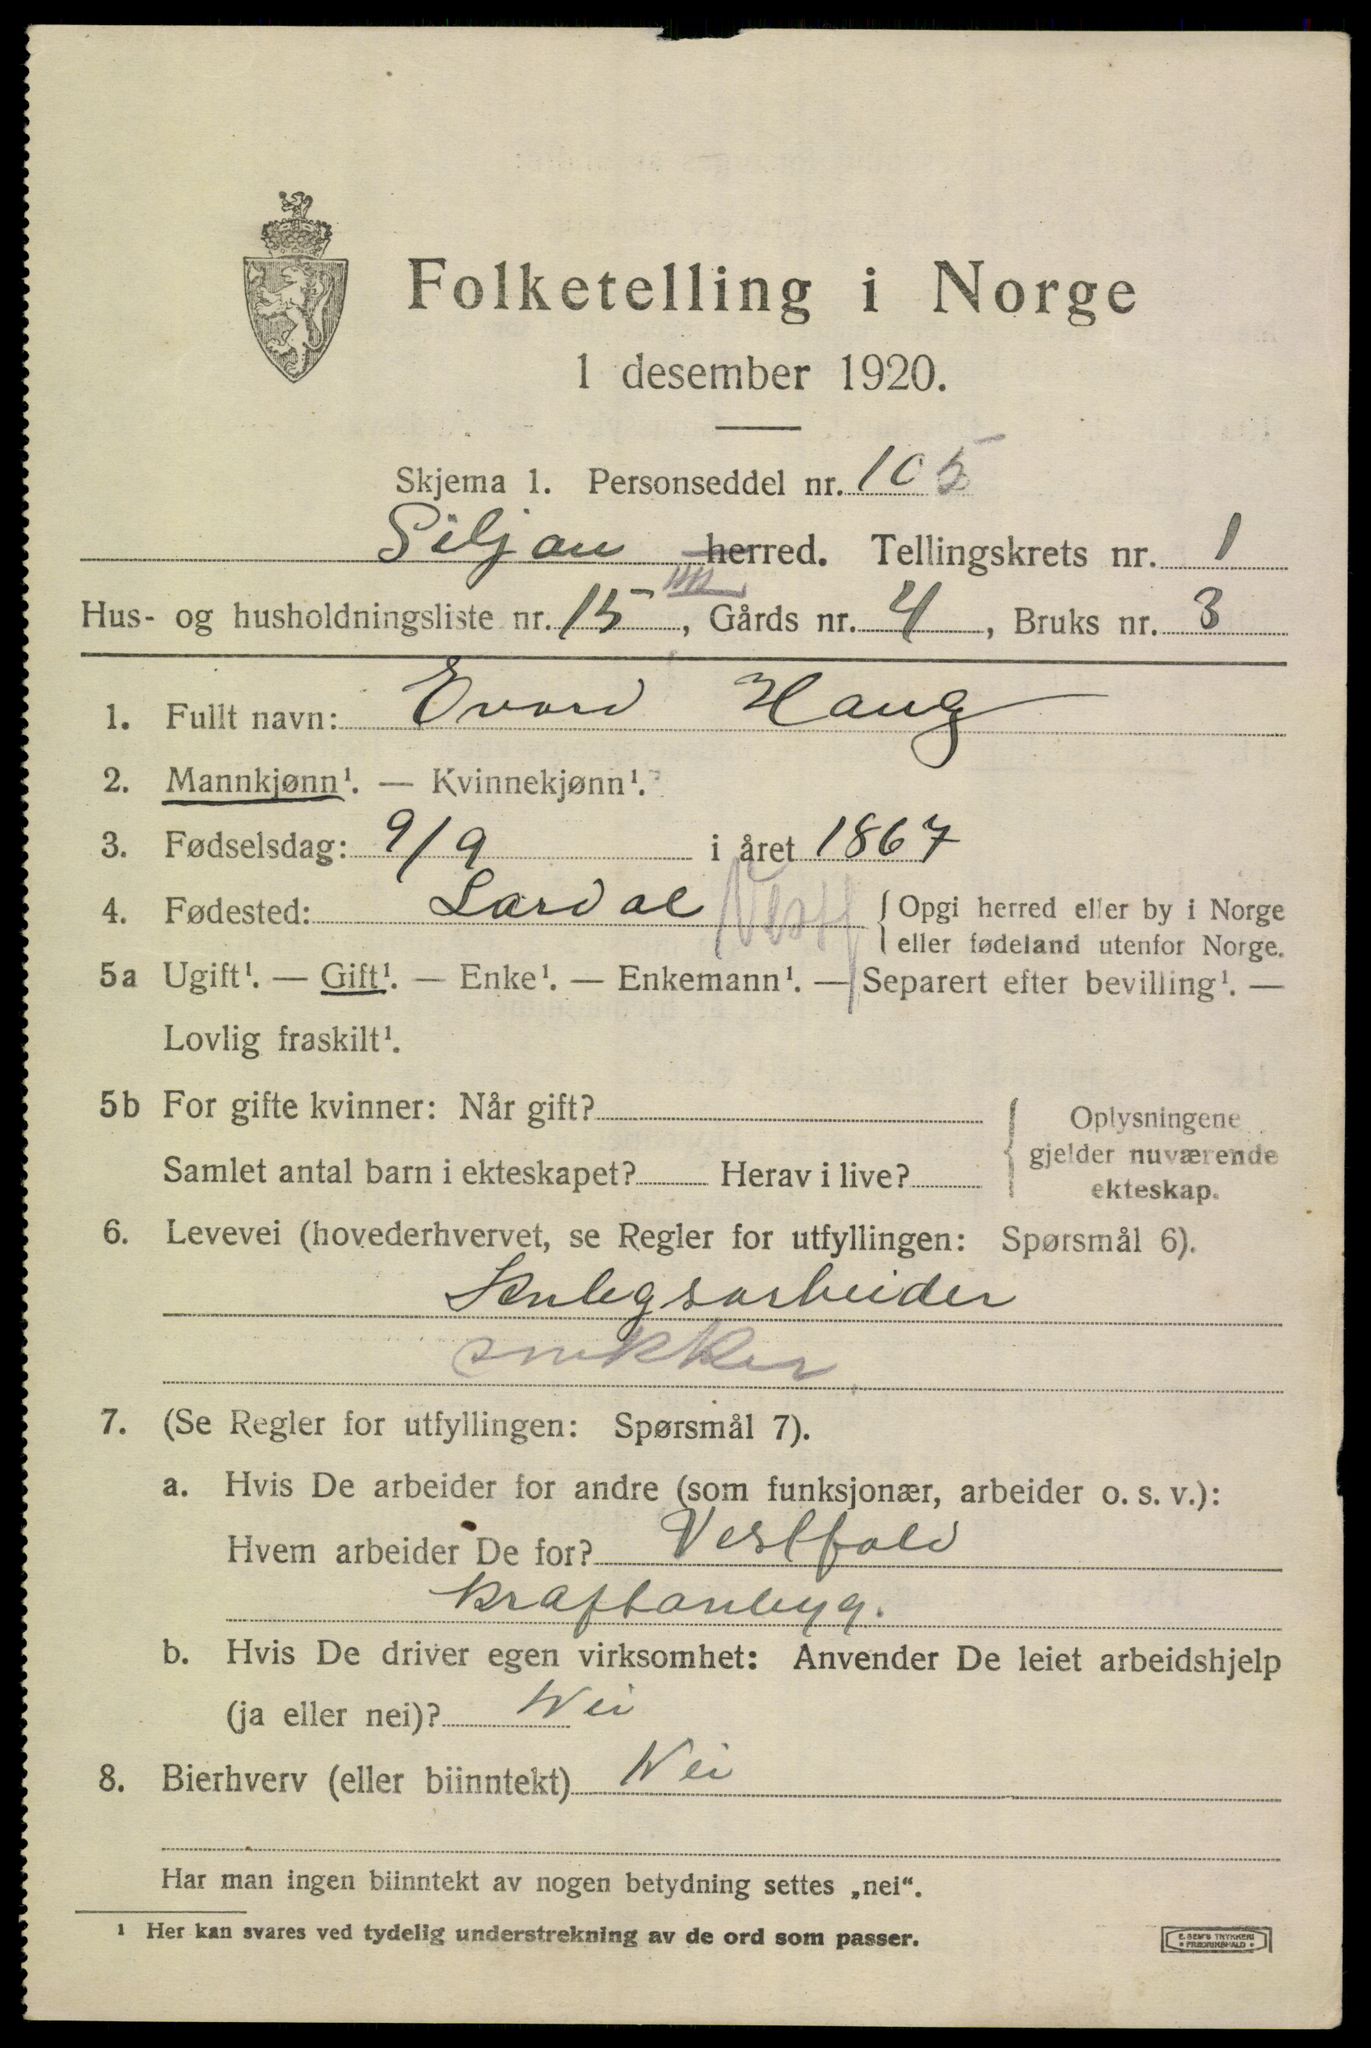 Folketelling i Norge
1 desember 1920.
Skjema 1. Personseddel nr. 105
Siljan herred. Tellingskrets nr. 1
Hus- og husholdningsliste nr. 15, Gårds nr. 4, Bruks nr. 3
1. Fullt navn: Evard Haug
2. Mannkjønn¹. — Kvinnekjønn¹.
3. Fødselsdag: 9/9 i året 1867
4. Fødested: Lardal Vestf { Opgi herred eller by i Norge
eller fødeland utenfor Norge.
5a Ugift¹. — Gift¹. — Enke¹. — Enkemann¹. — Separert efter bevilling¹. —
Lovlig fraskilt¹.
5b For gifte kvinner: Når gift? { Oplysningene
gjelder nuværende
Samlet antal barn i ekteskapet? Herav i live?
ekteskap.
6. Levevei (hovederhvervet, se Regler for utfyllingen: Spørsmål 6).
Anlegsarbeider
snekker
7. (Se Regler for utfyllingen: Spørsmål 7).
a. Hvis De arbeider for andre (som funksjonær, arbeider o. s. v.):
Hvem arbeider De for? Vestfold
kraftanbyg.
b. Hvis De driver egen virksomhet: Anvender De leiet arbeidshjelp
(ja eller nei)? Nei
8. Bierhverv (eller biinntekt) Nei
Har man ingen biinntekt av nogen betydning settes „nei“.
¹ Her kan svares ved tydelig understrekning av de ord som passer.
E. SEM'S TRYKKERI
FREDRIKSHALD